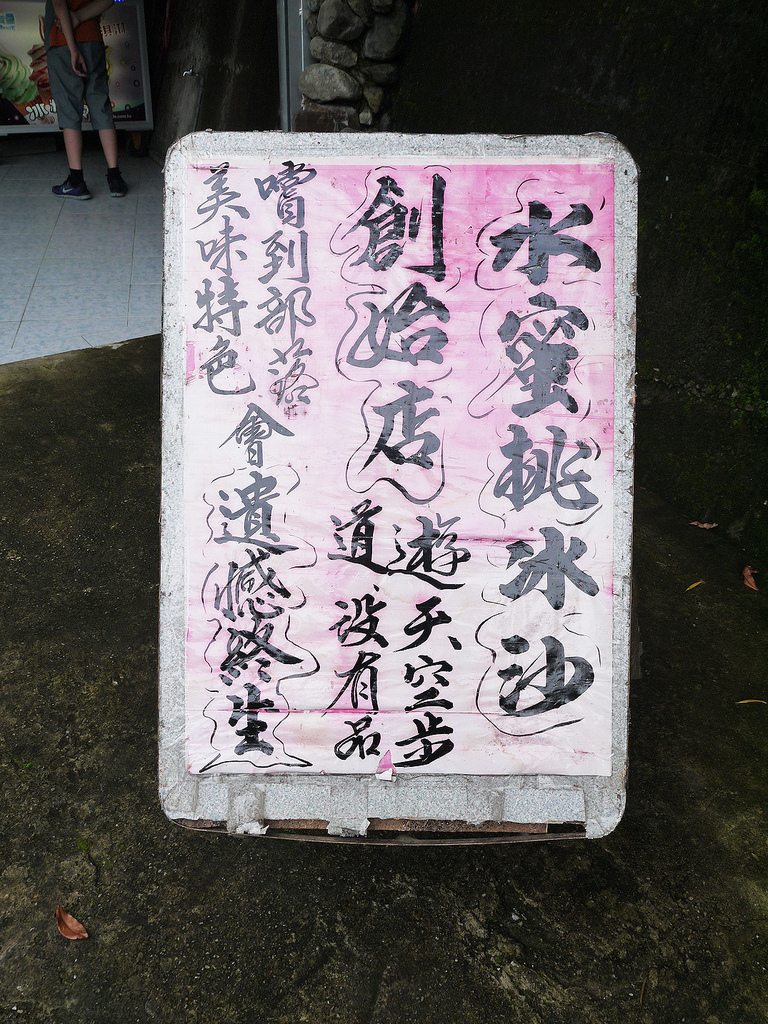 水蜜桃冰沙
創始店
遊天空步
道沒有品
嚐到部落
美味特色
會遺憾終生